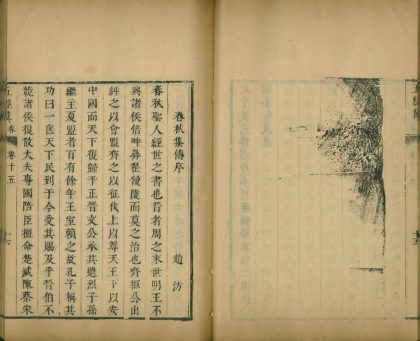 春秋集傳序
趙汸
春秋聖人經世之書也昔者周之末世明王不
興諸侯倍畔彝翟侵陵而莫之治也齊桓公出
糾之以會盟齊之以征伐上以尊天王下以安
中國而天下復歸于正晉文公承其遺烈子孫
繼主夏盟者百有餘年王室賴之故孔子稱其
功曰一匡天下民到于今受其賜及乎晉伯不
競諸侯復散大夫專國陪臣擅命楚滅陳蔡宋
卷十五